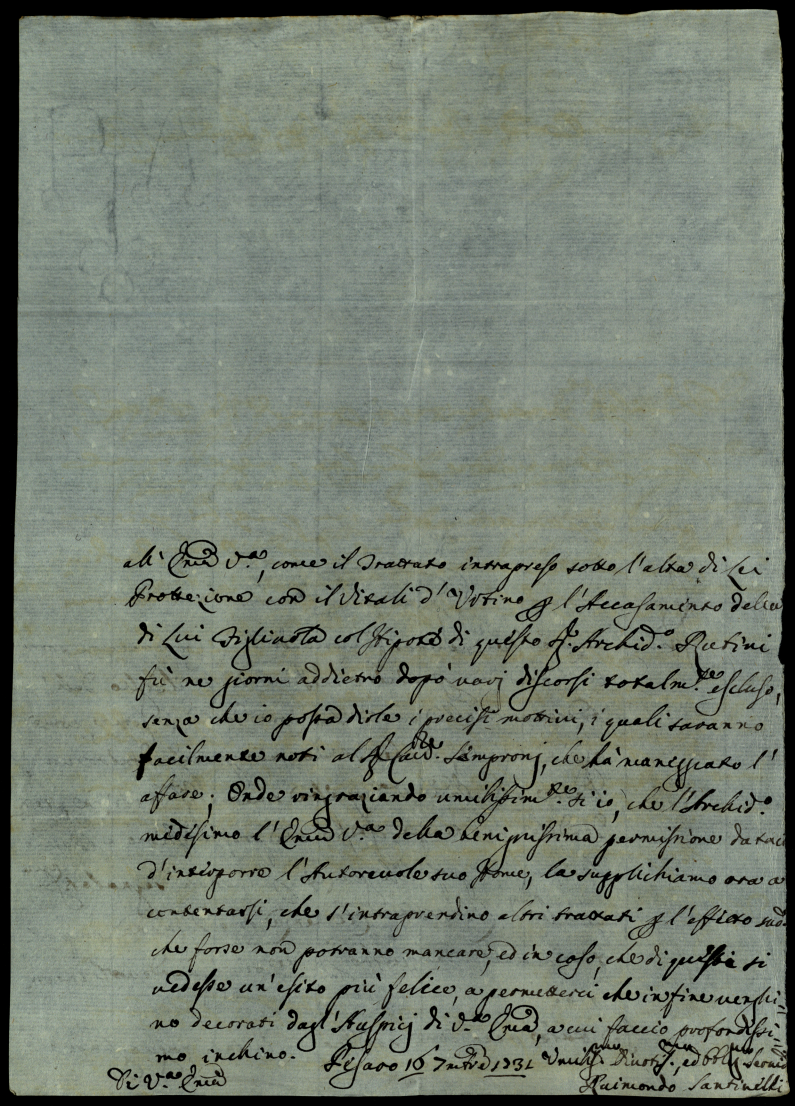 all' Em.a V.a, come il Trattato intrapreso sotto l'alta di Lei
Protezzione con il Vitali d'Urbino p l'Accasamento della
di Lui Figliuola col Nipote di questo Sr. Archid.o Rutini
fù ne giorni addietro dopò varj discorsi totalm.te escluso,
senza che io possa dirle i precisi mottivi, i quali saranno
facilmente noti al Sr. Semproni, che hà maneggiato l'
affare; Onde ringraziando umilissim.te sì io, che l'Archid.o
medesimo l'Em.a V.a della benignissima permissione dataci
d'interporre l'Autorevole suo Nome, la supplichiamo ora a
contentarsi, che s'intraprendino altri trattati p l'effetto sud.o
che forse non potranno mancare, ed in caso, che di questi si
vedesse un'esito più felice, a permetterci che infine venghi-
no decorati dagl'Auspicj di V.a Em.a, a cui faccio profondissi-
mo inchino. Pesaro 16 7mbre 1731
Di V.a Em.a
Umiliss. Divotis., ed Obblig. Servid.
Raimondo Santinelli